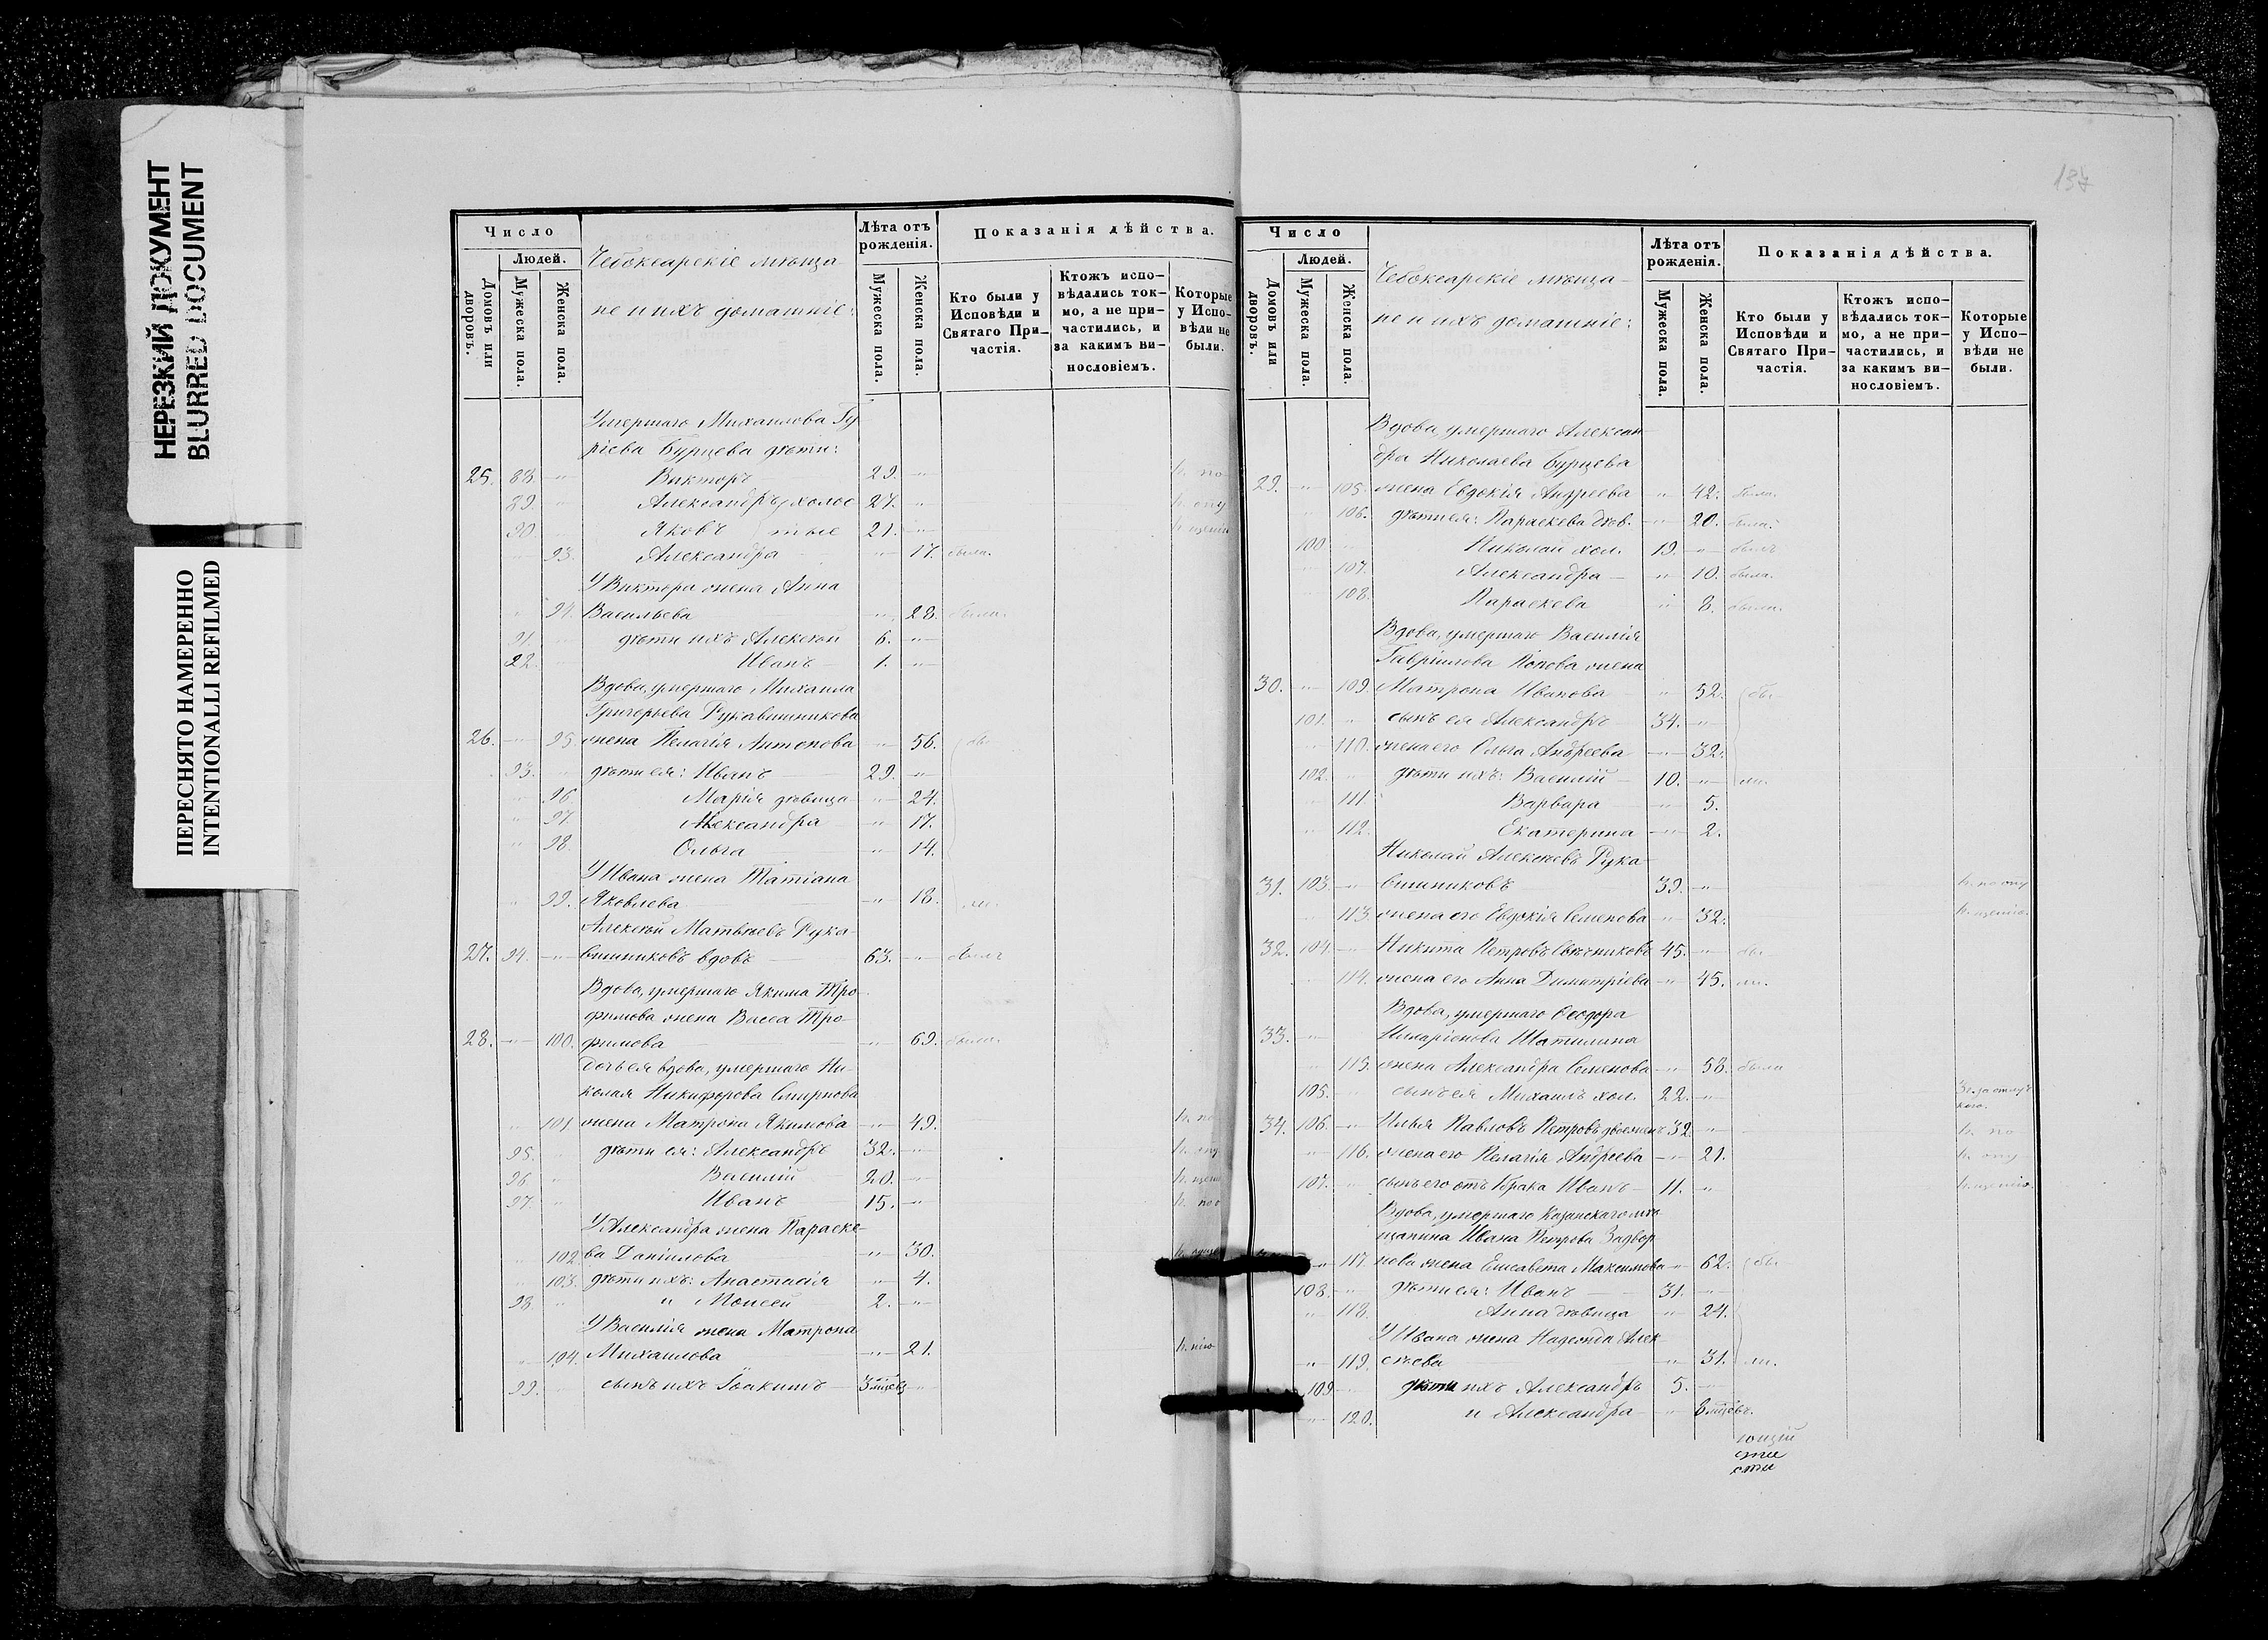 НЕРЕЗКИЙ ДОКУМЕНТ
BLURRED DOCUMENT
ПЕРЕСНЯТО НАМЕРЕННО
INTENTIONALLI REFILMED
Число
Людей.
Домовъ или дворовъ.
Мужеска пола.
Женска пола.
Чебоксарскіе мѣща-
не и ихъ домашніе:
Лѣта отъ рожденія.
Мужеска пола.
Женска пола.
Показанія дѣйства.
Кто были у Исповѣди и Святаго При-частія.
Ктожъ испо-вѣдались ток-мо, а не при-частились, и за какимъ ви-нословіемъ.
Которые у Испо-вѣди не были.
Умершаго Михаилова Гу
ріева Бурцева дѣти:
25. 88. -"- Викторъ 29. -"- по
89. Александръ холос 27. -"- опу
90. Яковъ тые 21. -"- щенію
-"- 93. Александра -"- 17. была.
У Виктора жена Анна
94. Васильева -"- 28. была.
91. дѣти ихъ Алексѣй 6. -"-
92. Иванъ 1. -"-
Вдова, умершаго Михаила
Григорьева Рукавишникова
26. -"- 95. жена Пелагія Антонова -"- 56. бы
93. дѣти ея: Иванъ 29. -"-
-"- 96. Марія дѣвица -"- 24.
-"- 97. Александра -"- 17.
-"- 98. Ольга -"- 14.
У Ивана жена Татіана
-"- 99. Яковлева -"- 18. ли.
Алексѣй Матвѣевъ Рука-
27. 94. -"- вишниковъ вдовъ 63. -"- былъ
Вдова, умершаго Якима Тро-
фимова жена Васса Тро-
28. -"- 100. фимова -"- 69. была.
дочь ея вдова, умершаго Ни-
колая Никифорова Смирнова
-"- 101 жена Матрона Якимова -"- 49. по
95. дѣти ея: Александръ 32. -"- опу
96. Василій 20. -"- щенію
97. Иванъ 15. -"- по о
У Александра жена Параске-
102. ва Даниилова -"- 30.
103. дѣти ихъ: Анастасія -"- 4.
98. и Моисей 2. -"-
У Василія жена Матрона
104. Михаилова -"- 21. нію
99. сынъ ихъ Іоакимъ 3 мцевъ -"-
137
Число
Людей.
Домовъ или дворовъ.
Мужеска пола.
Женска пола.
Чебоксарскіе мѣща-
не и ихъ домашніе:
Лѣта отъ рожденія.
Мужеска пола.
Женска пола.
Показанія дѣйства.
Кто были у Исповѣди и Святаго При-частія.
Ктожъ испо-вѣдались ток-мо, а не при-частились, и за какимъ ви-нословіемъ.
Которые у Испо-вѣди не были.
Вдова, умершаго Алексан
дра Николаева Бурцева
29. -"- 105. жена Евдокія Андреева -"- 42. была.
106. дѣти ея: Параскева дѣв. -"- 20. была.
100 Николай хол. 19. -"- былъ
107. Александра -"- 10. была.
108. Параскева -"- 8. была.
Вдова, умершаго Василія
Гавріилова Попова жена
30. -"- 109. Матрона Иванова -"- 52. бы-
101. -"- сынъ ея Александръ 34. -"-
-"- 110. жена его Ольга Андреева -"- 32.
102. дѣти ихъ: Василій 10. -"- ли.
-"- 111. Варвара -"- 5.
-"- 112. Екатерина -"- 2.
Николай Алексѣевъ Рука-
31. 103. -"- вишниковъ 39. -"- по опу
113. жена его Евдокія Семенова -"- 32. щенію.
32. 104. -"- Никита Петровъ Свѣчниковъ 45. -"- бы-
114. жена его Анна Димитріева -"- 45. ли.
Вдова, умершаго Ѳеодора
33. -"- Иларіонова Шатилина
115. жена Александра Семенова -"- 58. была
105. сынъ ея Михаилъ хол. 22. -"- За отлуч
кою.
34. 106. -"- Илья Павловъ Петровъ двоежен. 32 -"- по
-"- 116. жена его Пелагія Андреева -"- 21. опу
107. -"- сынъ его отъ 1 брака Иванъ 11. -"- щенію.
Вдова, умершаго Казанскаго мѣ
щанина Ивана Петрова Задвор
-"- 117. нова жена Елисавета Максимова -"- 62. бы-
108. -"- дѣти ея: Иванъ 31. -"-
-"- 118. Анна дѣвица -"- 24.
У Ивана жена Надежда Алек
-"- 119. сѣева -"- 31. ли.
109 дѣти ихъ Александръ 5. -"-
-"- 120. и Александра -"- 8 мцевъ.